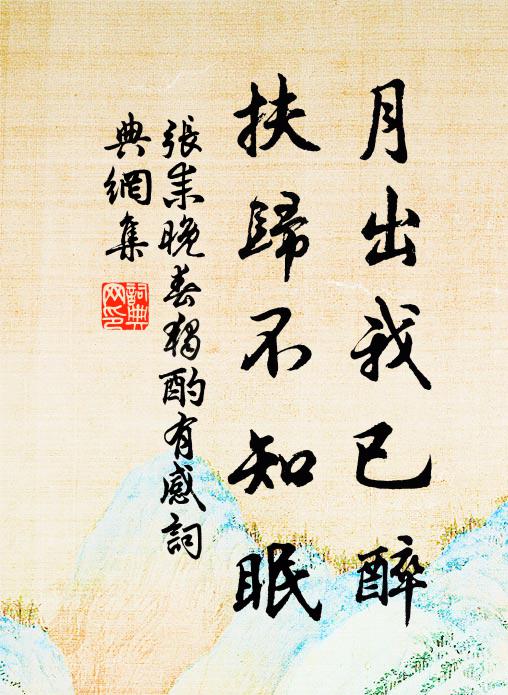 月出我已醉
扶歸不知眠
張耒晚春獨酌有感詞
典網集
詞典網印